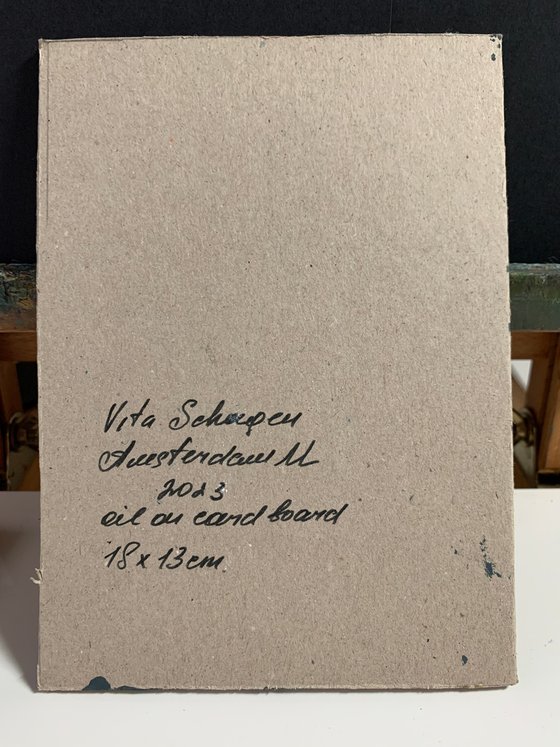 Vita Schagen
Amsterdam
2023
oil on cardboard
18 x 13 cm